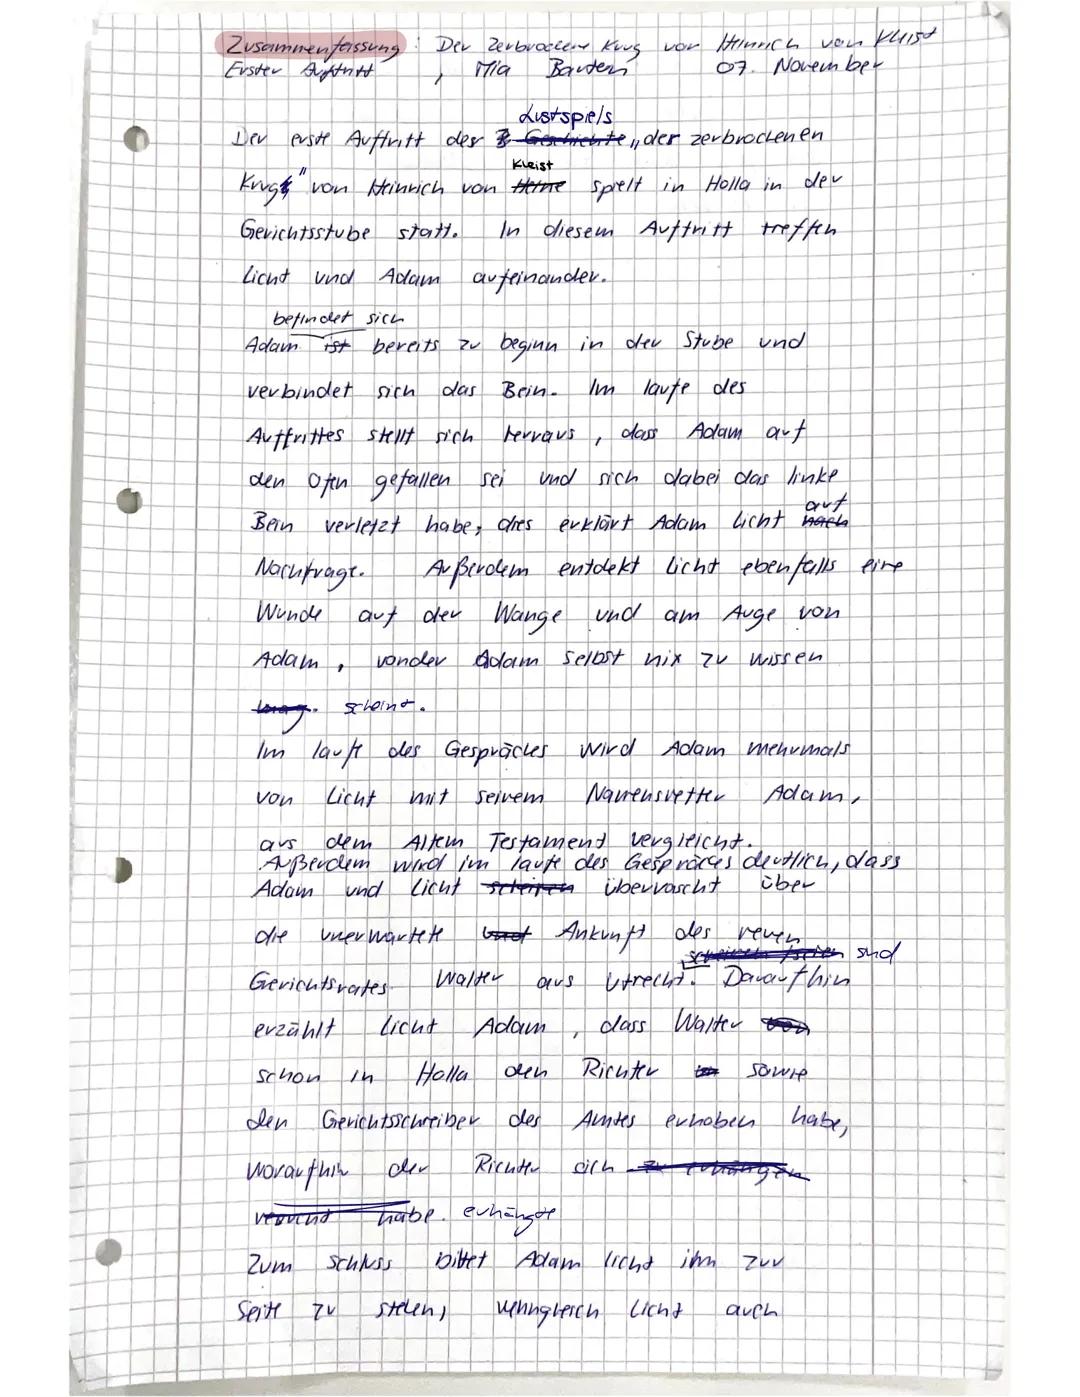 Zusammenfassung: Der zerbrochene Krug von Heinrich von Kleist
Erster Auftritt, Mia Barten 07. November
Lustspiels
Der erste Auftritt des Geschichte „des zerbrochenen
Kleist
Krugs" von Heinrich von Heine spielt in Holla in der
Gerichtsstube statt. In diesem Auftritt treffen
Licht und Adam aufeinander.
befindet sich
Adam ist bereits zu beginn in der Stube und
verbindet sich das Bein. Im laufe des
Auftrittes stellt sich herraus, dass Adam auf
den Ofen gefallen sei und sich dabei das linke
auf
Bein verletzt habe, dies erklärt Adam licht nach
Nachfrage. Außerdem entdekt Licht ebenfalls eine
Wunde auf der Wange und am Auge von
Adam, vonder Adam selbst nix zu wissen
mag. scheint.
Im laufe des Gespräches wird Adam mehrmals
von Licht mit seinem Namensvetter Adam,
aus dem Altem Testament vergleicht.
Außerdem wird im laufe des Gespräches deutlich, dass
Adam und Licht scheinen überrascht über
die unerwartete und Ankunft des neuen
scheinen seien sind
Gerichtsrates Walter aus Utrecht. Daraufhin
erzählt Licht Adam, dass Walter von
schon in Holla den Richter sowie
den Gerichtsschreiber des Amtes erhoben habe,
woraufhin der Richter sich zu erhängen
versucht habe. erhängte
Zum schluss bittet Adam licht ihm zur
Seite zu stehen, wenngleich Licht auch